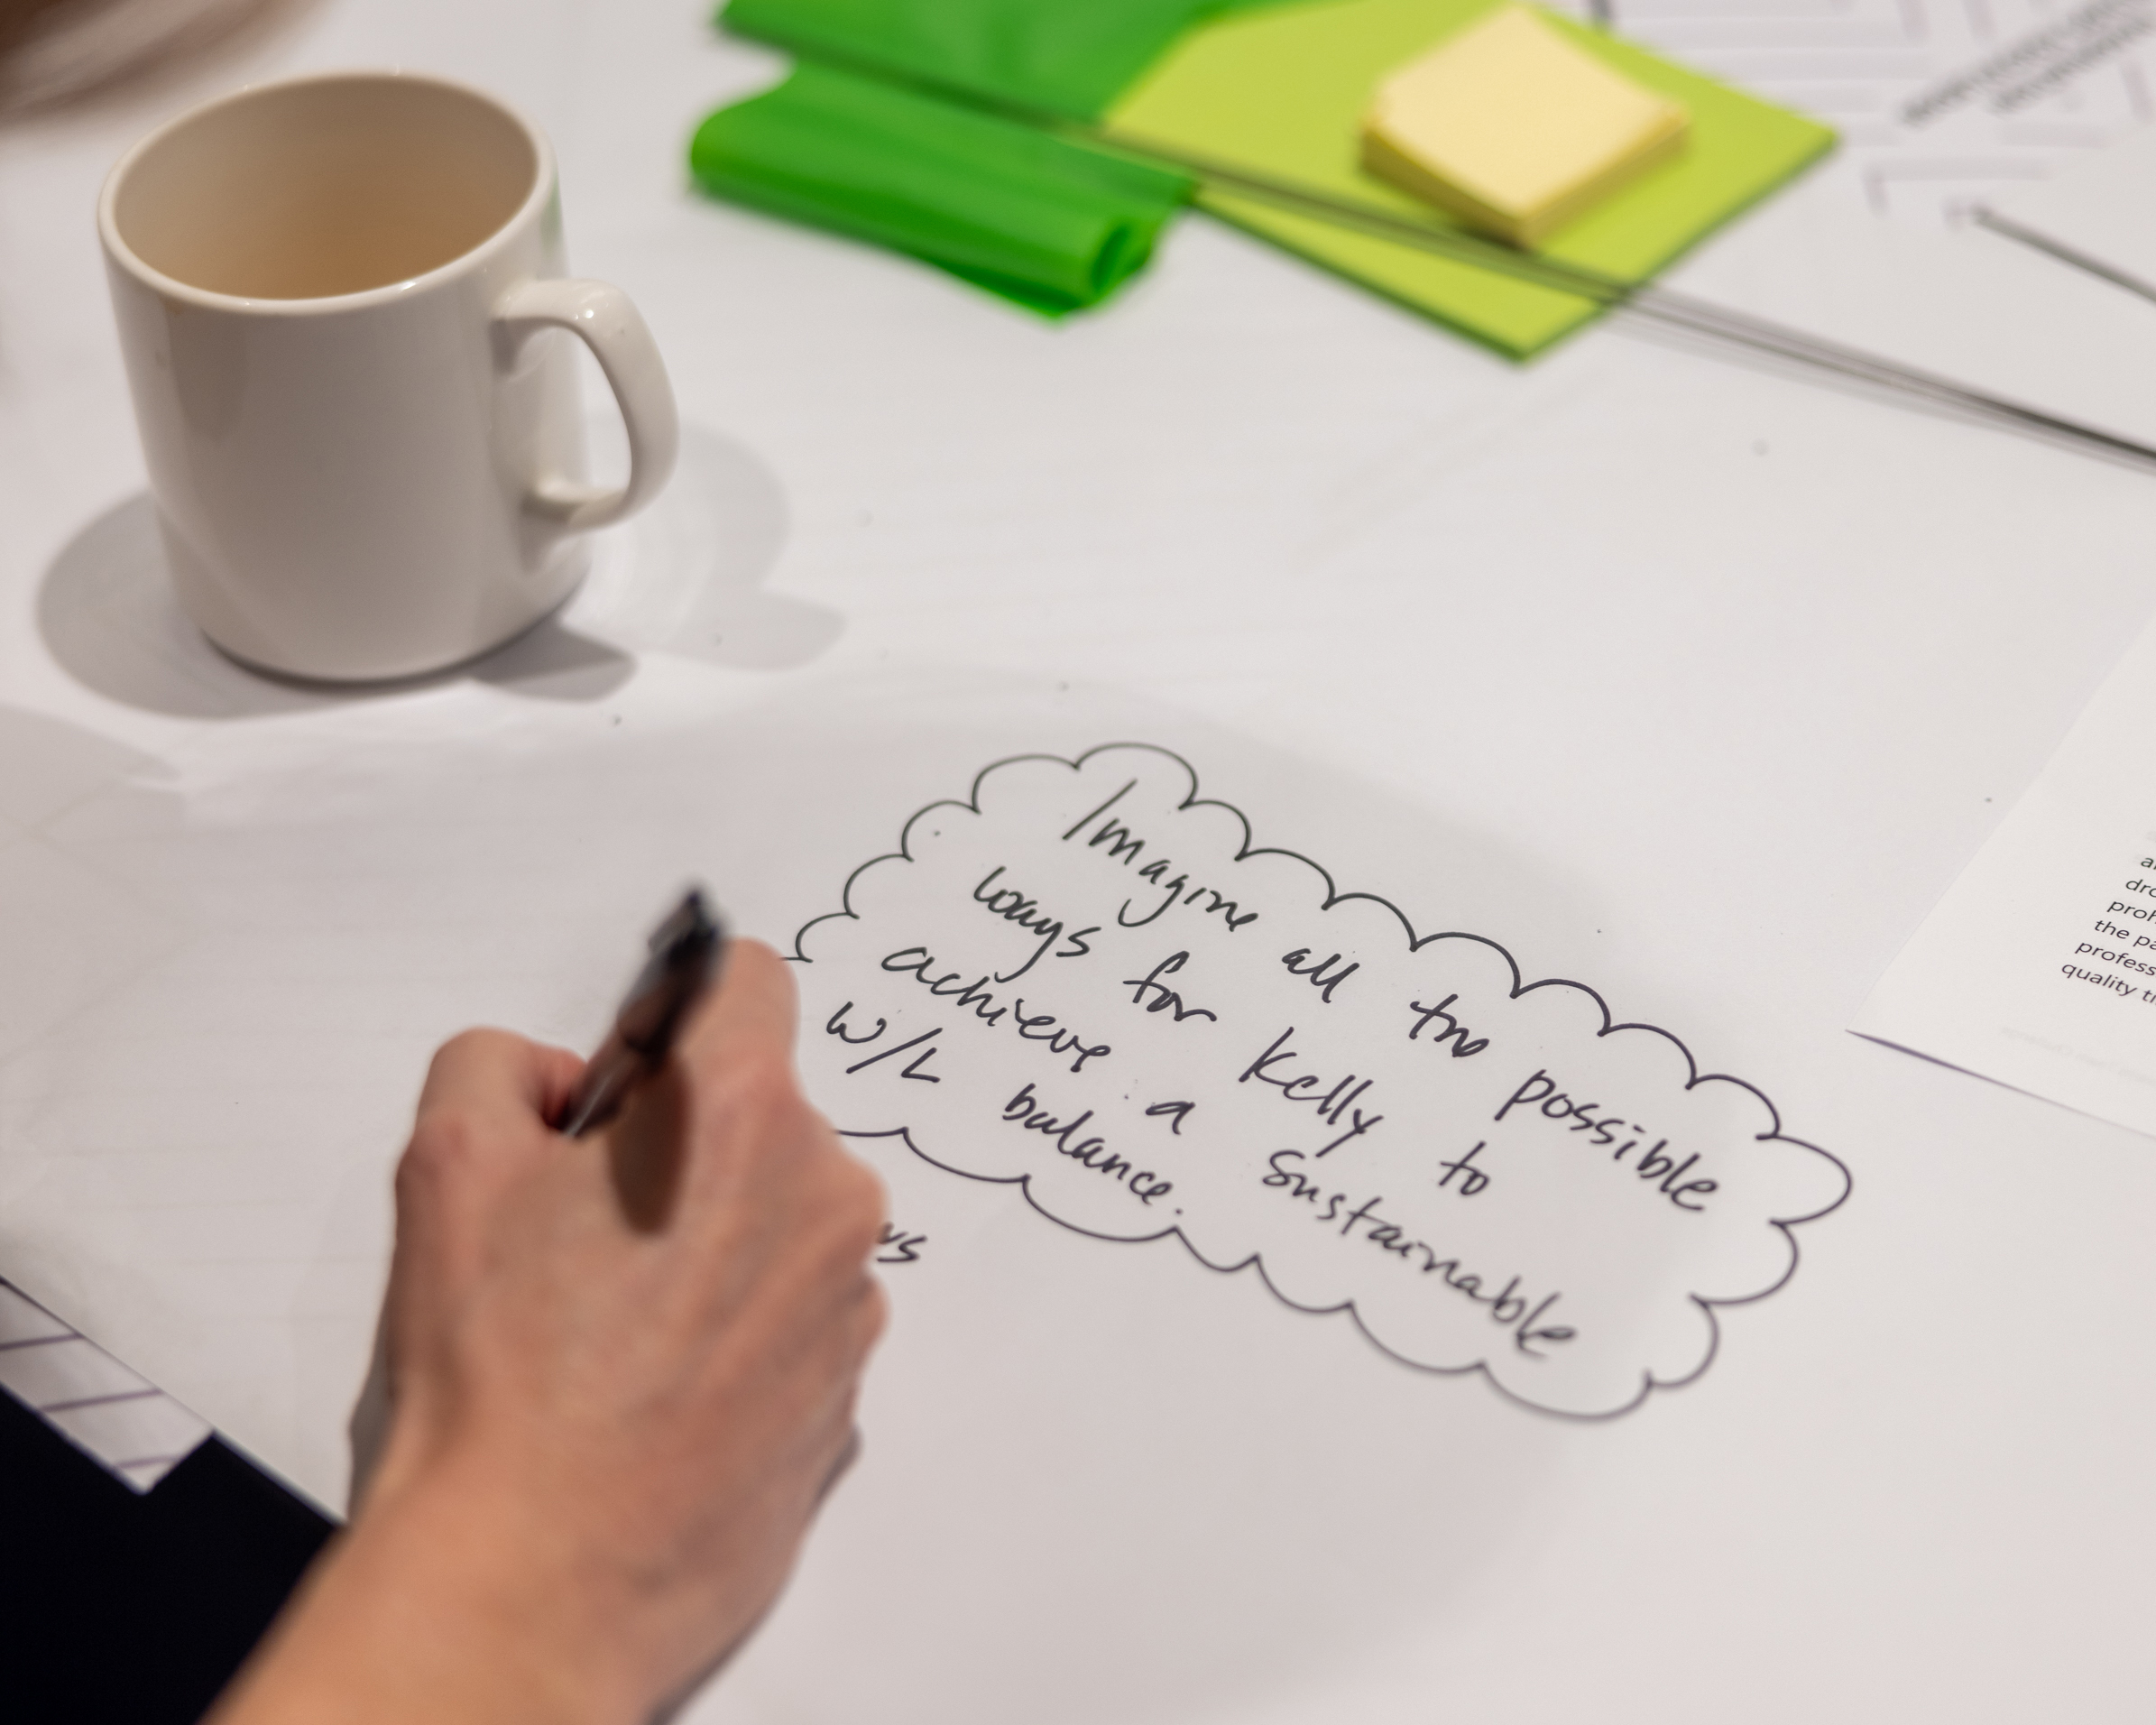 Imagine all the possible
ways for Kelly to
achieve a sustainable
W/L balance.
the pa
profess
quality ti